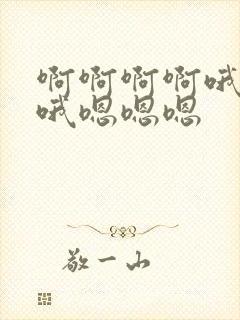 啊啊啊啊哦
哦嗯嗯嗯
敬一山